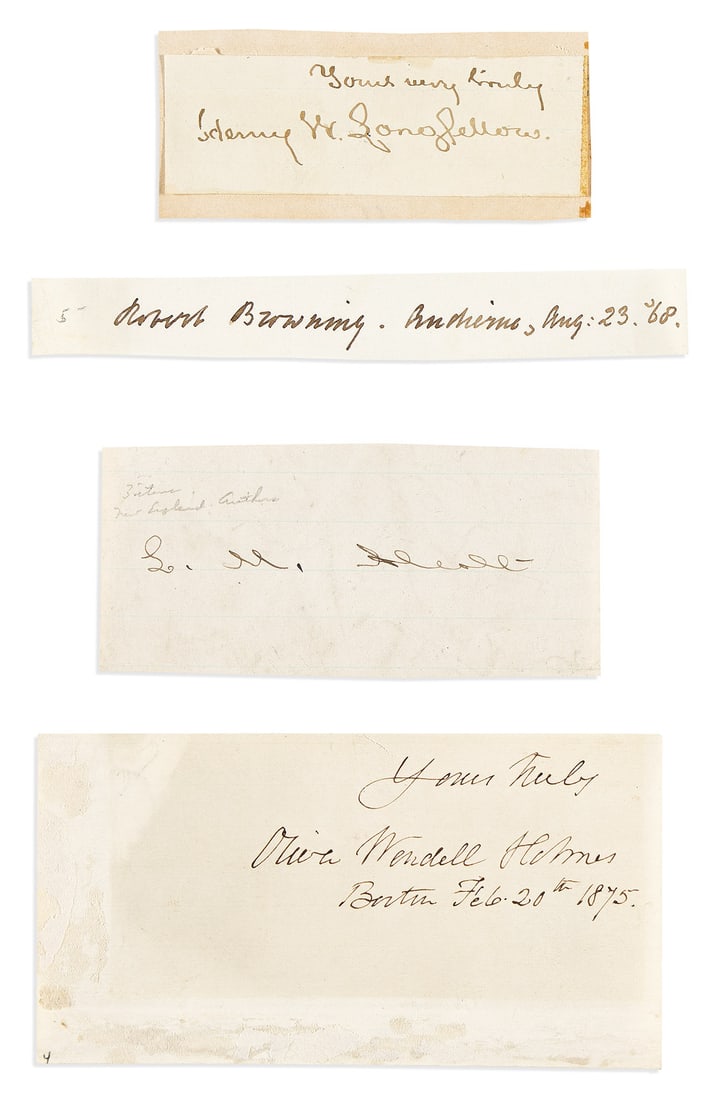 Yours very truly
Henry W. Longfellow.
5 Robert Browning. Audierne, Aug: 23. '68.
New England Authors
L. M. Alcott
Yours truly
Oliver Wendell Holmes
Boston Feb. 20th 1875.
4